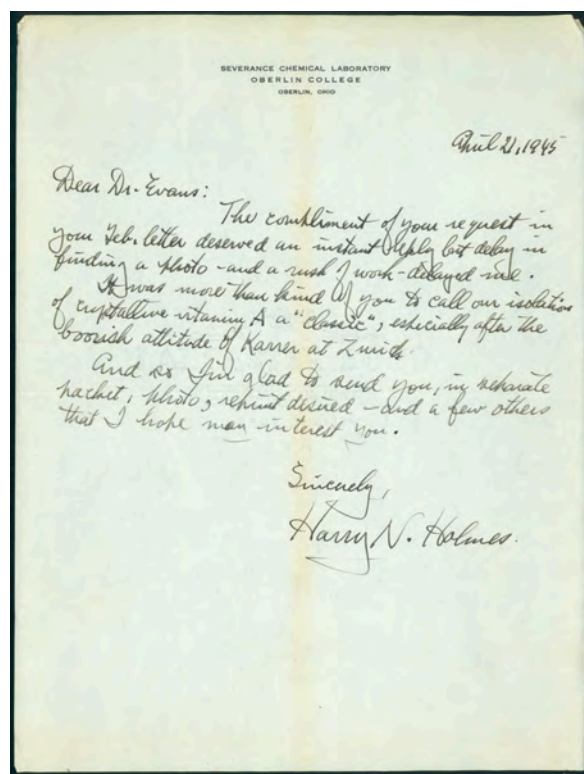 SEVERANCE CHEMICAL LABORATORY
OBERLIN COLLEGE
OBERLIN, OHIO
April 21, 1945
Dear Dr. Evans:
The compliment of your request in
your Feb. letter deserved an instant reply but delay in
finding a photo - and a rush of work - delayed me.
It was more than kind of you to call our isolation
of crystalline vitamin A a "classic", especially after the
boorish attitude of Karrer at Zurich.
And so I'm glad to send you, in separate
packet, photo, reprint desired - and a few others
that I hope may interest you.
Sincerely,
Harry N. Holmes.